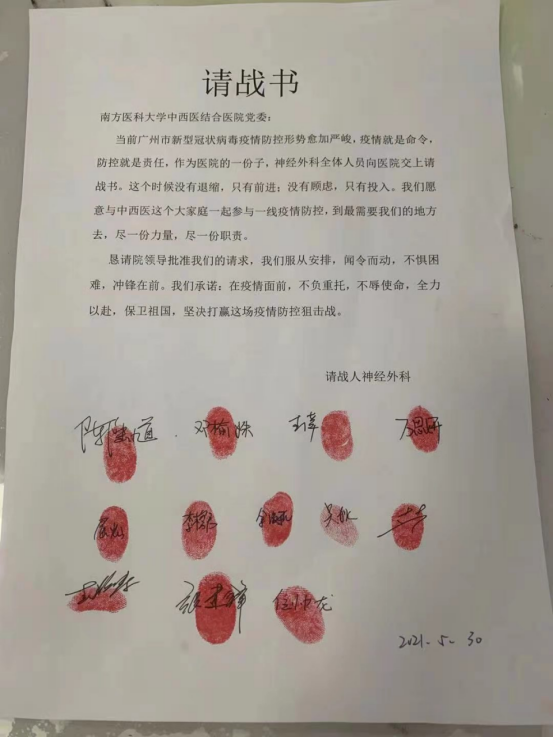 请战书
南方医科大学中西医结合医院党委：
当前广州市新型冠状病毒疫情防控形势愈加严峻，疫情就是命令，
防控就是责任，作为医院的一份子，神经外科全体人员向医院交上请
战书。这个时候没有退缩，只有前进；没有顾虑，只有投入。我们愿
意与中西医这个大家庭一起参与一线疫情防控，到最需要我们的地方
去，尽一份力量，尽一份职责。
恳请院领导批准我们的请求，我们服从安排，闻令而动，不惧困
难，冲锋在前。我们承诺：在疫情面前，不负重托，不辱使命，全力
以赴，保卫祖国，坚决打赢这场疫情防控狙击战。
请战人神经外科
2021.5.30